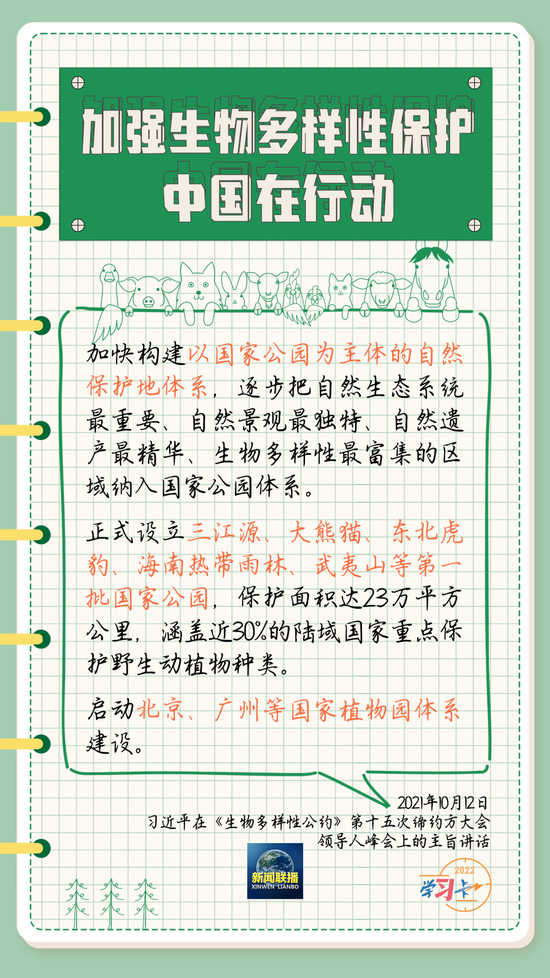 加强生物多样性保护
中国在行动
加快构建以国家公园为主体的自然
保护地体系，逐步把自然生态系统
最重要、自然景观最独特、自然遗
产最精华、生物多样性最富集的区
域纳入国家公园体系。
正式设立三江源、大熊猫、东北虎
豹、海南热带雨林、武夷山等第一
批国家公园，保护面积达23万平方
公里，涵盖近30%的陆域国家重点保
护野生动植物种类。
启动北京、广州等国家植物园体系
建设。
2021年10月12日
习近平在《生物多样性公约》第十五次缔约方大会
领导人峰会上的主旨讲话
新闻联播
XINWEN LIANBO
2022
学习卡